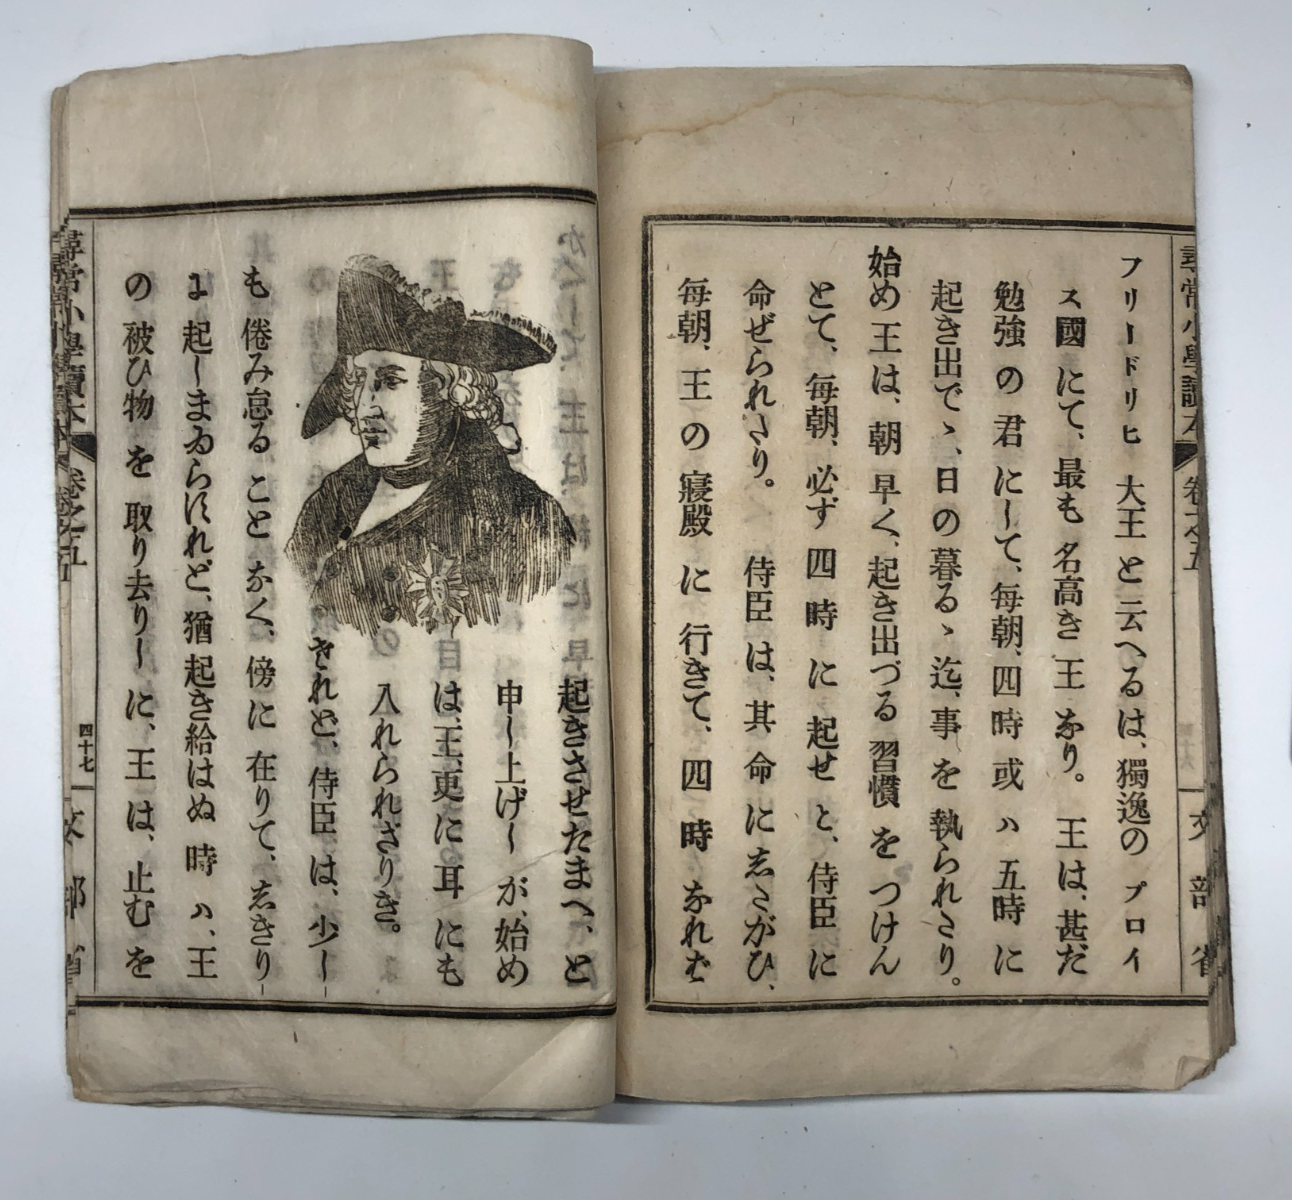 フリードリヒ 大王と云へるは、獨逸の プロイ
ス國にて、最も 名高き 王 なり。 王は、甚だ
勉強 の 君 にして、毎朝、四 時 或 ハ 五時 に
起き出でゝ、日の暮るゝ迄、事 を 執られたり。
始め 王 は、朝 早く、起き出づる 習慣 を つけん
とて、毎朝、必ず 四 時 に 起せ と、侍臣 に
命ぜられたり。 侍臣 は、其 命 に したがひ、
毎朝、王 の 寢殿 に 行きて、四 時 なれば
起きさせたまへ、と
申し上げし が、始め
は、王、更に 耳 にも
入れられざりき。
されど、侍臣 は、少し
も 倦み怠る こと なく、傍に 在りて、しきり
に 起しまゐらすれど、猶 起き給はぬ 時 ハ、王
の 被ひ物 を 取り去りし に、王 は、止む を
尋常小學讀本 卷之五 文部省
尋常小學讀本 卷之五 四十七 文部省